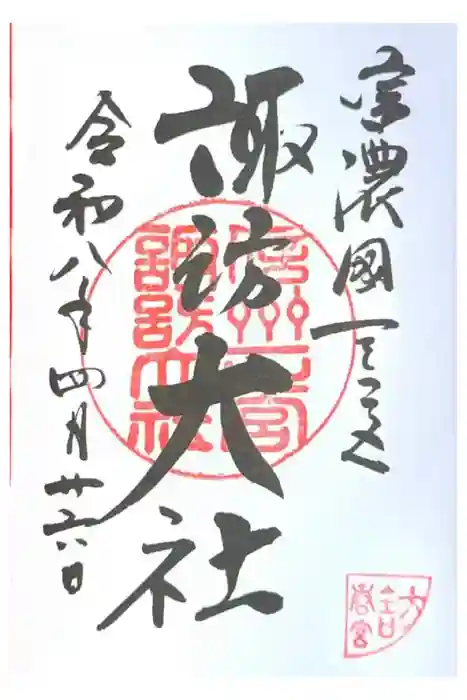 信濃國一之宮
諏訪大社
令和八年四月廿六日
諏訪大社